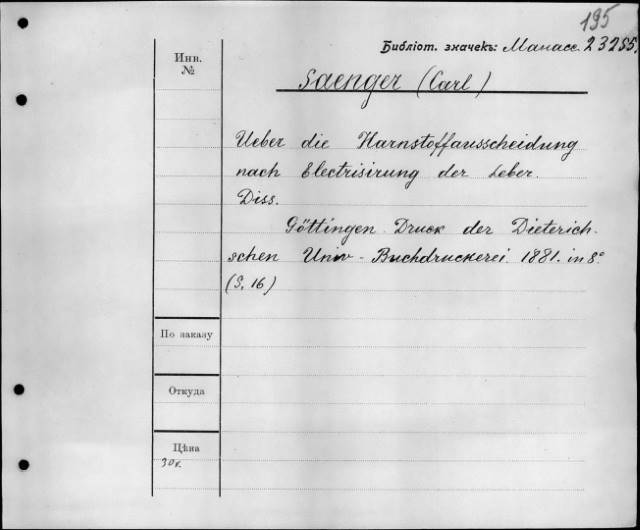 195
Библіот. значекъ: Манасс. 23285.
Инв.
№
Saenger (Carl)
Ueber die Harnstoffausscheidung
nach Electrisirung der Leber.
Diss.
Göttingen. Druck der Dieterich-
schen Univ - Buchdruckerei. 1881. in 8°
(S. 16)
По заказу
Откуда
Цѣна
30к.